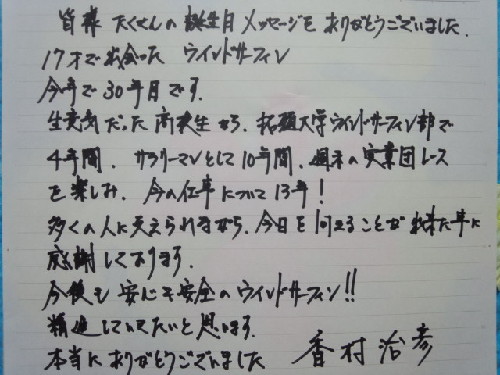 皆様 たくさんの誕生日メッセージを ありがとうございました.
17才で出会った ウインドサーフィン
今年で30年目です.
生意気だった高校生から、拓殖大学ウインドサーフィン部で
4年間、サラリーマンとして10年間、週末の実業団レース
を楽しみ、今の仕事について13年!
多くの人に支えられながら、今日を迎えることが出来た事に
感謝しております.
今後も安心安全のウインドサーフィン!!
精進していきたいと思います.
本当にありがとうございました 香村治彦